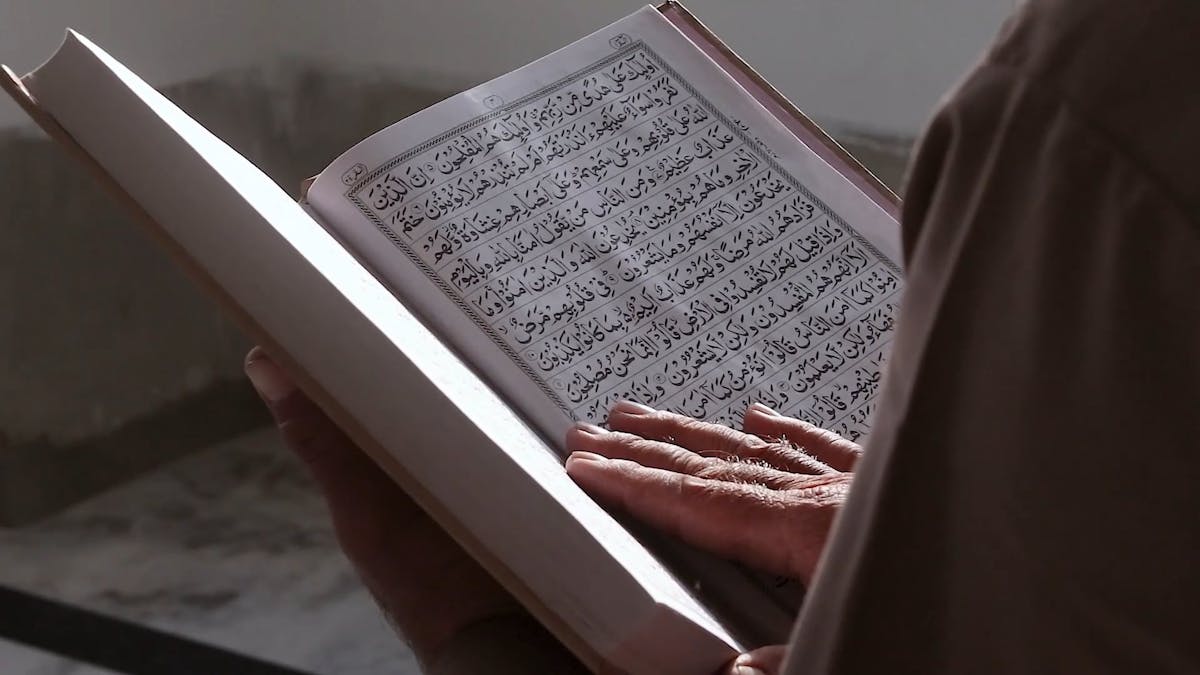 أُولَٰئِكَ عَلَىٰ هُدًى مِّن رَّبِّهِمْ وَأُولَٰئِكَ هُمُ الْمُفْلِحُونَ إِنَّ الَّذِينَ
كَفَرُوا سَوَاءٌ عَلَيْهِمْ ءَأَنذَرْتَهُمْ أَمْ لَمْ تُنذِرْهُمْ لَا يُؤْمِنُونَ خَتَمَ
اللَّهُ عَلَىٰ قُلُوبِهِمْ وَعَلَىٰ سَمْعِهِمْ وَعَلَىٰ أَبْصَارِهِمْ غِشَاوَةٌ وَلَهُمْ
عَذَابٌ عَظِيمٌ وَمِنَ النَّاسِ مَن يَقُولُ آمَنَّا بِاللَّهِ وَبِالْيَوْمِ
الْآخِرِ وَمَا هُم بِمُؤْمِنِينَ يُخَادِعُونَ اللَّهَ وَالَّذِينَ آمَنُوا وَمَا
يَخْدَعُونَ إِلَّا أَنفُسَهُمْ وَمَا يَشْعُرُونَ فِي قُلُوبِهِم مَّرَضٌ
فَزَادَهُمُ اللَّهُ مَرَضًا وَلَهُمْ عَذَابٌ أَلِيمٌ بِمَا كَانُوا يَكْذِبُونَ
وَإِذَا قِيلَ لَهُمْ لَا تُفْسِدُوا فِي الْأَرْضِ قَالُوا إِنَّمَا نَحْنُ مُصْلِحُونَ
أَلَا إِنَّهُمْ هُمُ الْمُفْسِدُونَ وَلَٰكِن لَّا يَشْعُرُونَ وَإِذَا
آمِنُوا كَمَا آمَنَ النَّاسُ قَالُوا أَنُؤْمِنُ كَمَا آمَنَ
وَلَٰكِن لَّا يَعْلَمُونَ وَإِذَا
قَالُوا